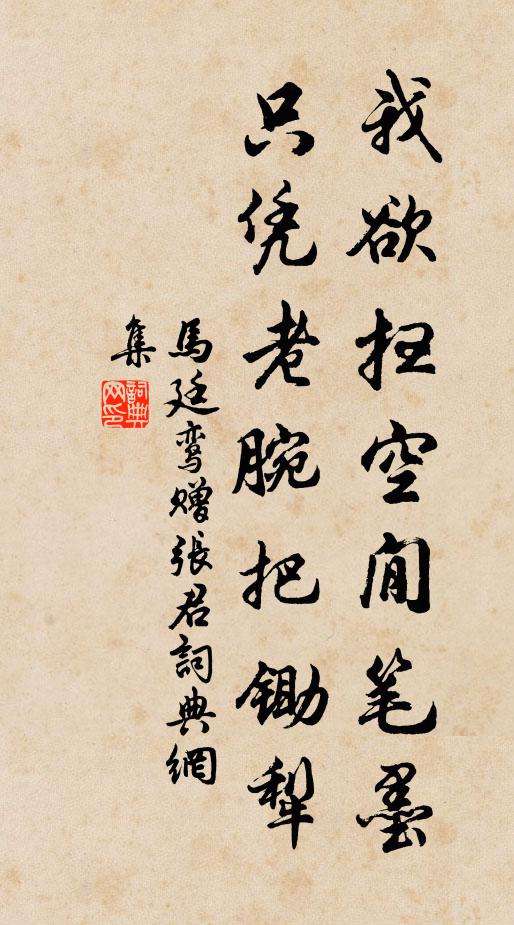 我欲扫空閒笔墨
只凭老腕把锄犁
馬廷鸾赠張君詞典網
集
詞典網印